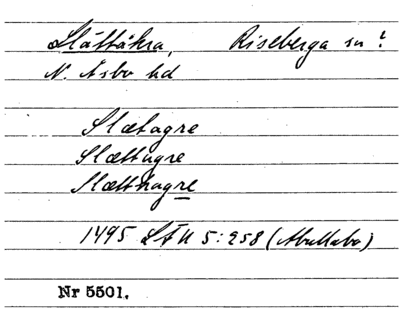 Slättåkra, Riseberga sn?
N. Åsbo hd
Slætagre
Slættagre
Slætthagre
1495 LÄU 5:258 (Abullaba)
Nr 5501.